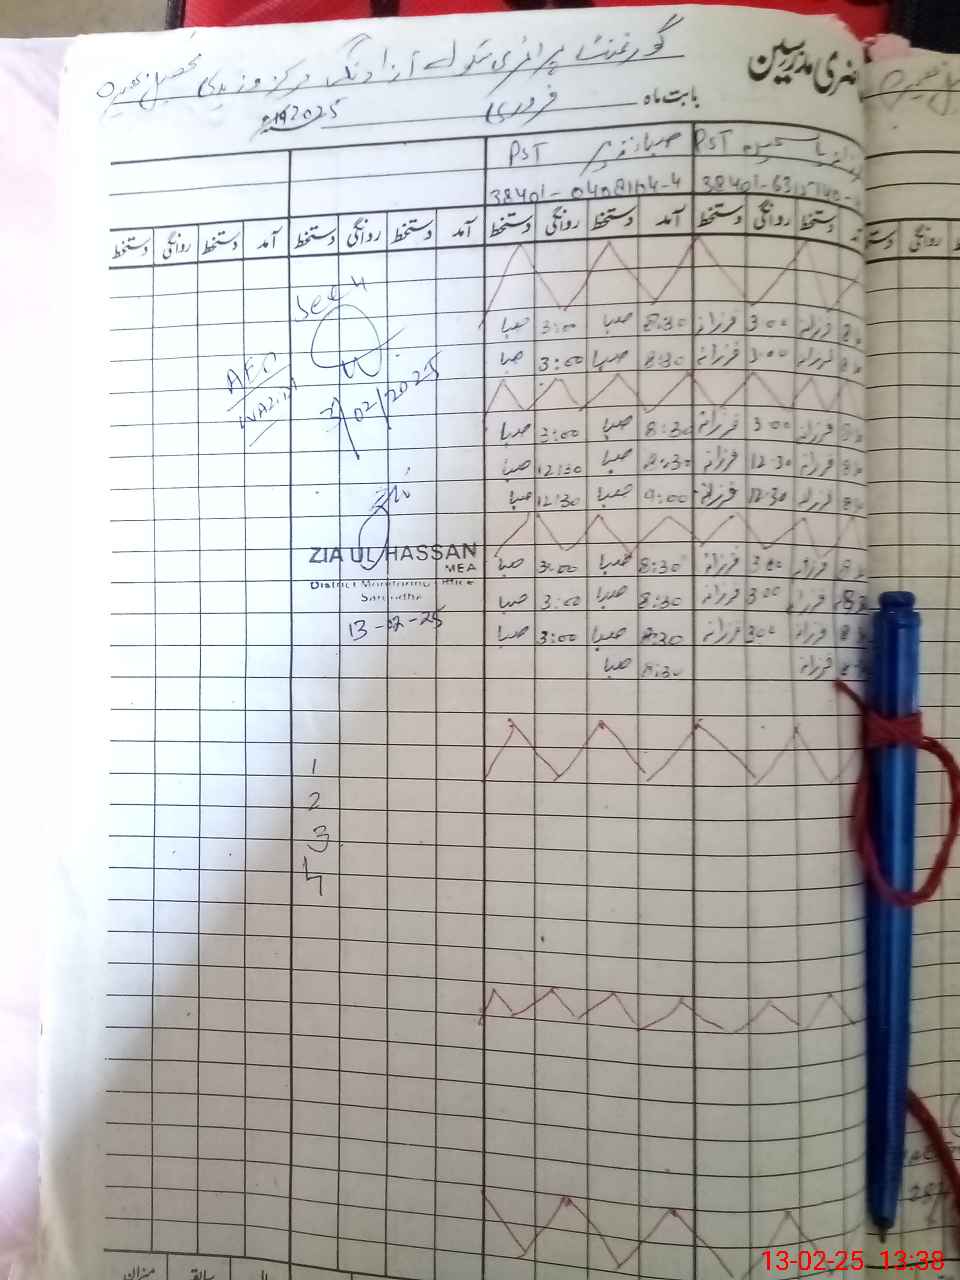 گورنمنٹ پرائمری سکول آزاد نگر مرکز وزیدی تحصیل بھیرہ
ضری مدرسین
بابت ماہ فروری 2025
PST صبا نذیر PST
38401-0408104-4 38401-6315140-
دستخط روانگی دستخط آمد دستخط روانگی دستخط آمد دستخط روانگی دستخط آمد دستخط روانگی دستخط
See 4
فرزانہ 3:00 فرزانہ 8:30 صبا 3:00 صبا
فرزانہ 3:00 فرزانہ 8:30 صبا 3:00 صبا
AEO
3/02/2025
فرزانہ 3:00 فرزانہ 8:30 صبا 3:00 صبا
فرزانہ 12:30 فرزانہ 8:30 صبا 12:30 صبا
فرزانہ 12:30 فرزانہ 9:00 صبا 12:30 صبا
ZIA UL HASSAN
MEA
District Monitoring Office
Sargodha
13-02-25
فرزانہ 3:00 فرزانہ 8:30 صبا 3:00 صبا
فرزانہ 3:00 فرزانہ 8:30 صبا 3:00 صبا
فرزانہ 3:00 فرزانہ 8:30 صبا 3:00 صبا
فرزانہ 8:30 صبا
1
2
3
4
میزان سابقہ
13-02-25 13:38